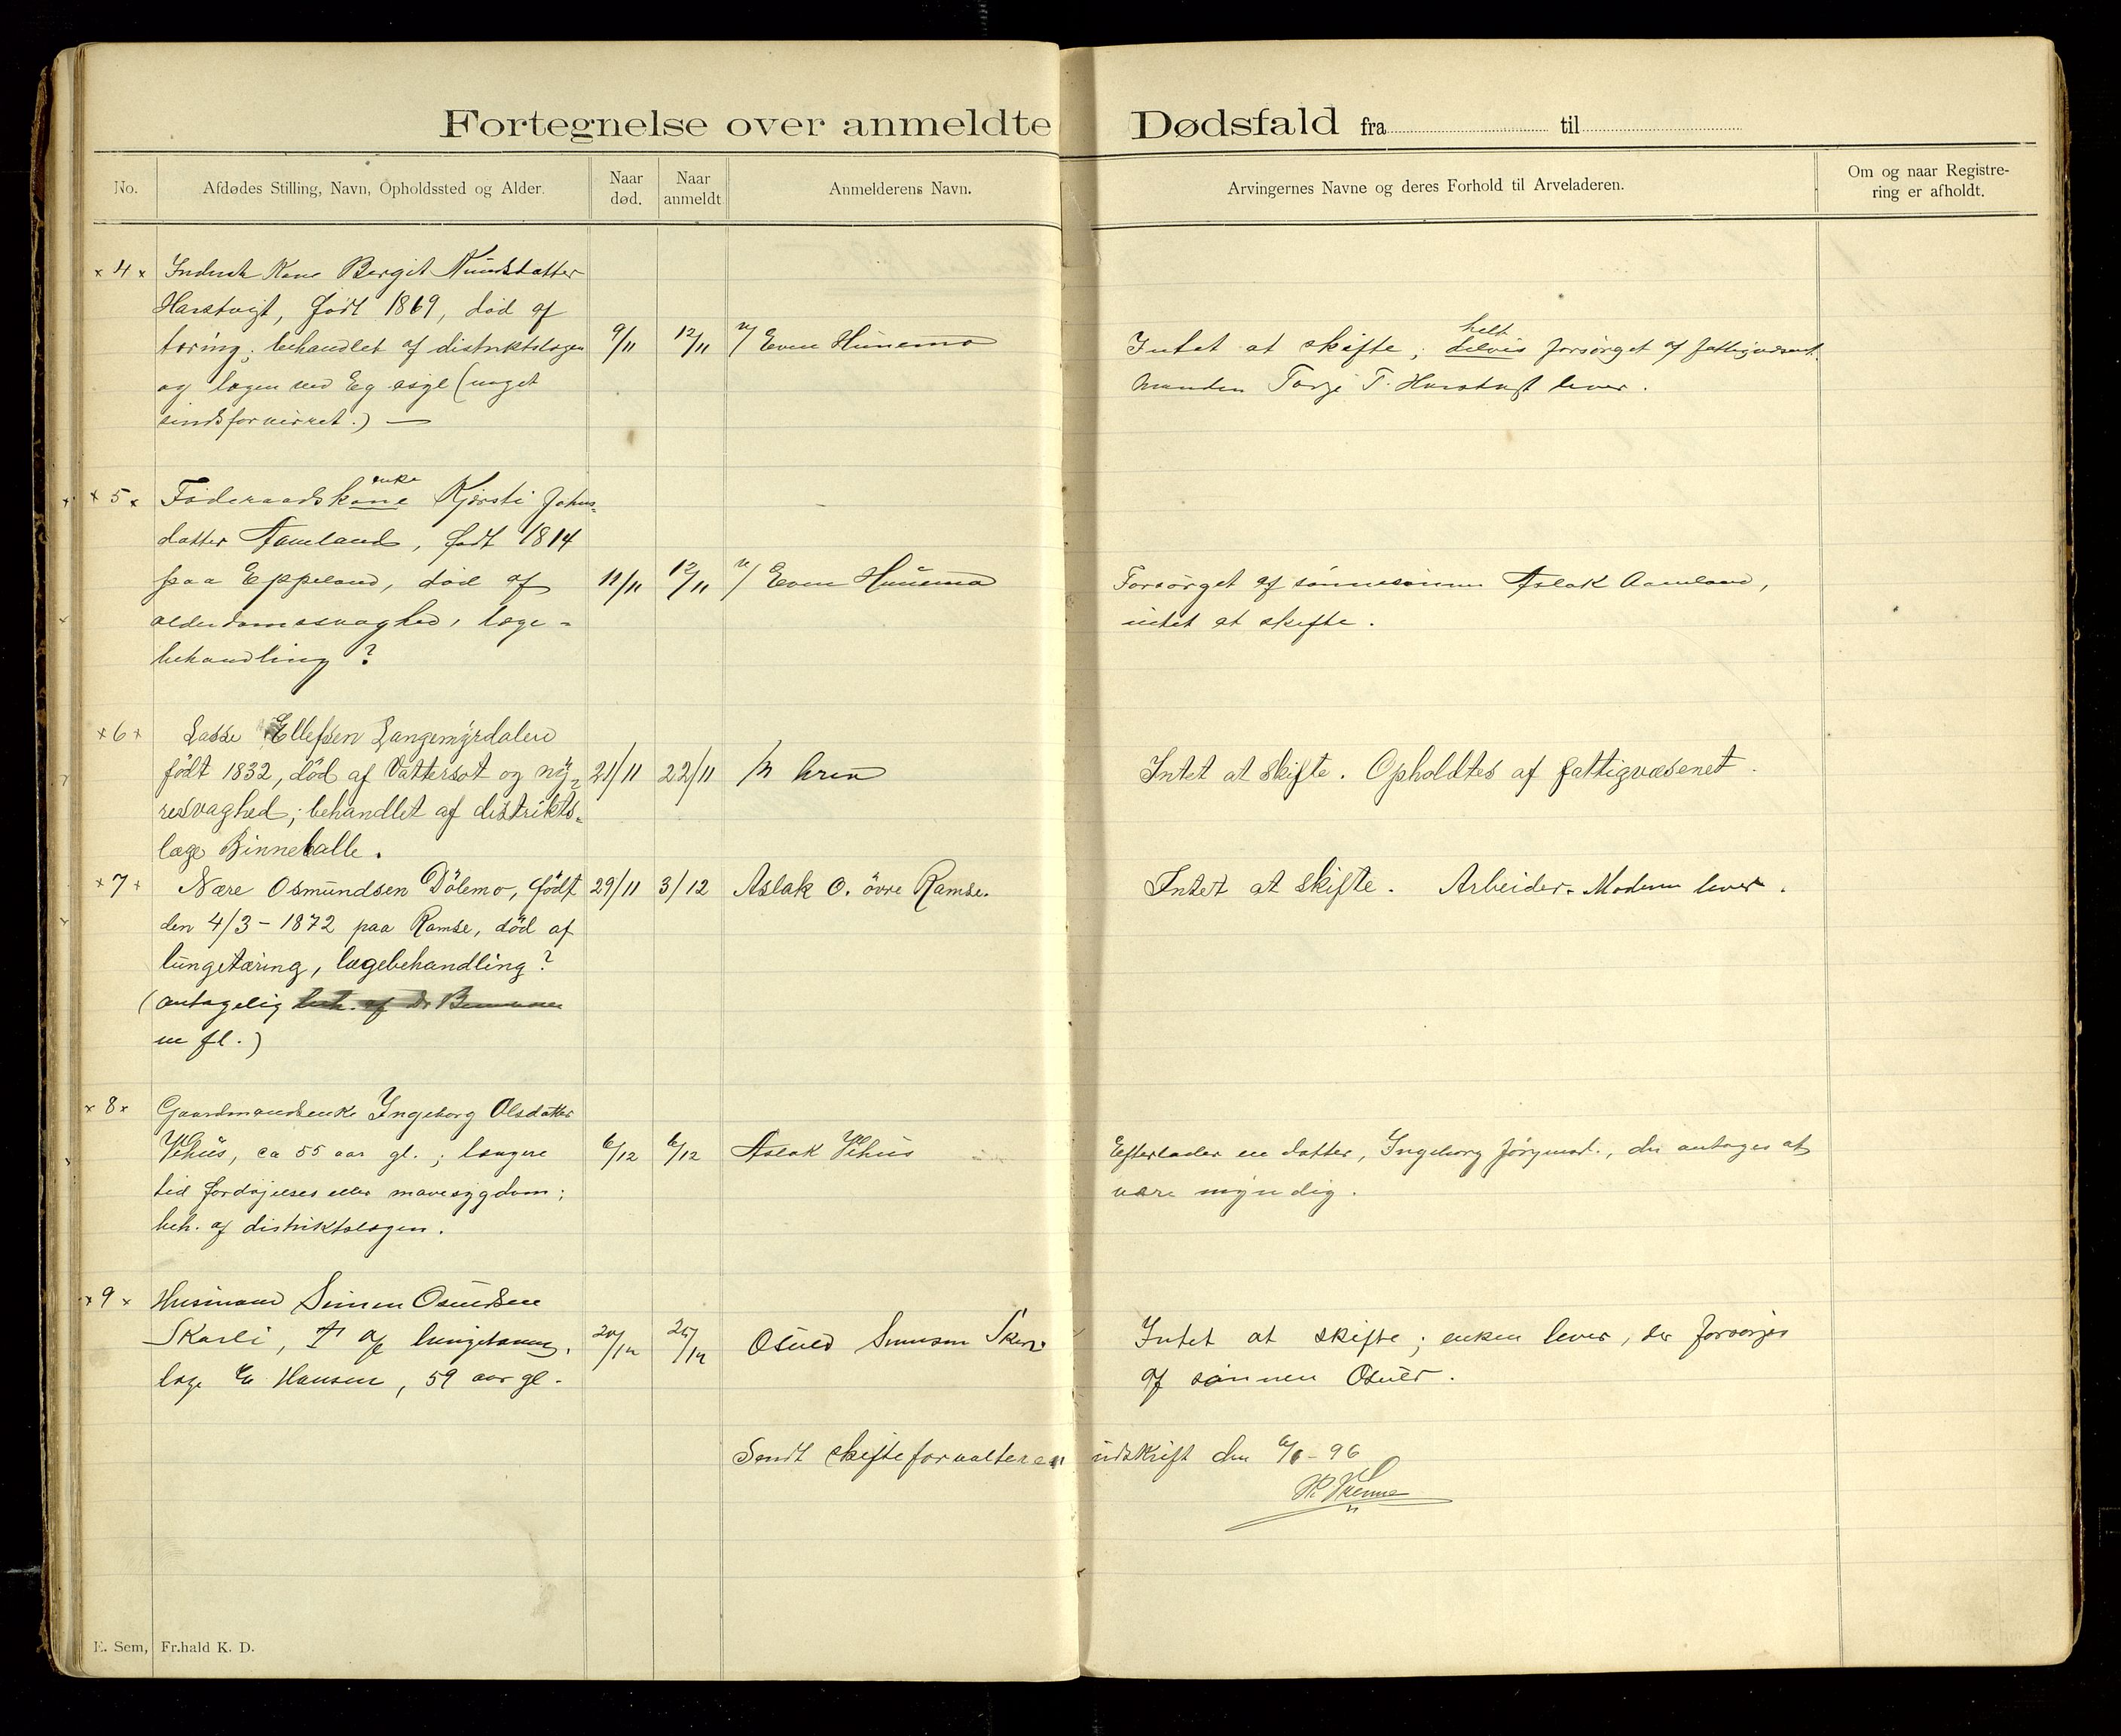 Fortegnelse over anmeldte Dødsfald fra til
No.
Afdødes Stilling, Navn, Opholdssted og Alder.
Naar død.
Naar anmeldt
Anmelderens Navn.
Arvingernes Navne og deres Forhold til Arveladeren.
Om og naar Registre-
ring er afholdt.
× 4 × Kone Bergit
født 1869, død af
tæring; behandlet af distriktslægen 9/11 12/11 Even Hunemo Intet at skifte; helt delvis forsørget af fattigvæsenet.
og lægen ved Eg asyl (noget Manden Torje T. lever.
sindsforvirret.) —
× 5 × Føderaadskone enke Kjersti Johns-
datter Aamland, født 1814
paa Eppeland, død af 11/11 12/11 Even Hunemo Forsørget af sønnesønnen Aslak Aamland,
alderdomssvaghed, læge- intet at skifte.
behandling?
× 6 × Lasse Ellefsen Langemyrdalen
født 1832, død af Vattersot og ny- 21/11 22/11 Intet at skifte. Opholdtes af fattigvæsenet.
resvaghed; behandlet af distrikts-
læge Binneballe.
× 7 × Nære Osmundsen Dölemo, født 29/11 3/12 Aslak O. övre Ramse. Intet at skifte. Arbeider. Moderen lever.
den 4/3 - 1872 paa Ramse, död af
lungetæring, lægebehandling?
(antagelig beh. af Dr
m fl.)
× 8 × Gaardmandsenke Ingeborg Olsdatter
Vehus, ca 55 aar gl.; længere 6/12 6/12 Aslak Vehus Efterlader en datter, Ingeborg, der antages at
tid fordøjelses eller mavesygdom; være myndig.
beh. af distriktslægen.
× 9 × Husmand Simen Osuldsen
Skarli, † af lungetæring, Osuld Simensen Intet at skifte; enken lever, der forsørges
læge Hansen, 59 aar gl. af sønnen Osuld.
Sendt skifteforvalteren udskrift den 6/1 - 96
E. Sem, Fr.hald K. D.